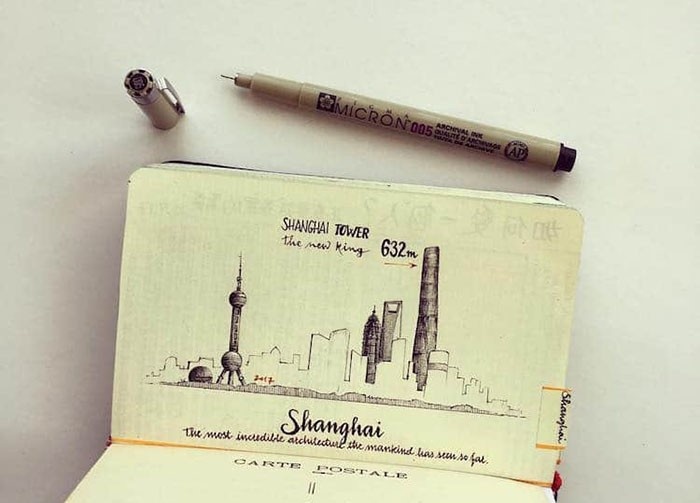 PIGMA
MICRON 005
ARCHIVAL INK
QUALITÉ D'ARCHIVAGE
AP
SHANGHAI TOWER
the new king 632m
2017
Shanghai
Shanghai
the most incredible architecture the mankind has seen so far.
CARTE POSTALE